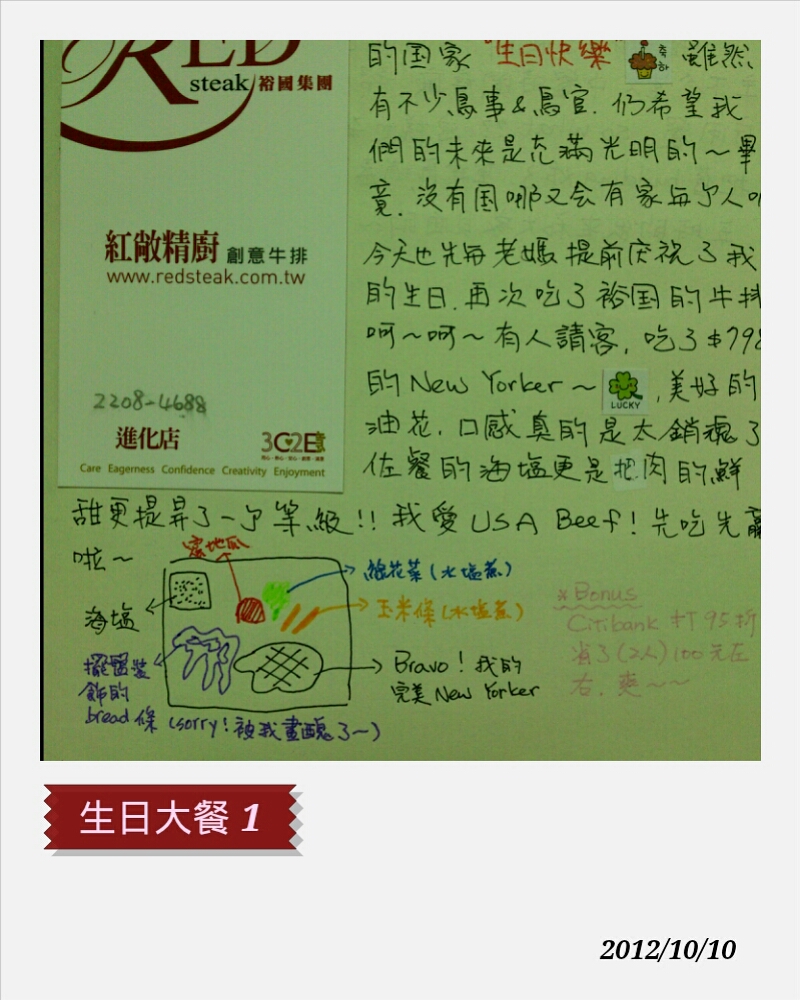 RED
steak 裕國集團
紅敞精廚 創意牛排
www.redsteak.com.tw
2208-4688
進化店
3C2E
Care Eagerness Confidence Creativity Enjoyment
的国家 "生日快樂" 축하 雖然
有不少鳥事&鳥官. 仍希望我
們的未來是充滿光明的～畢
竟. 沒有国哪又会有家每个人
今天也先与老媽提前庆祝了我
的生日. 再次吃了裕国的牛排
呵～呵～有人請客, 吃了$798
的New Yorker～ LUCKY ,美好的
油花. 口感真的是太銷魂了
佐餐的海塩更是把肉的鮮
甜更提昇了一个等級!! 我愛USA Beef! 先吃先贏
啦～
蜜地瓜
綠花菜(水塩煮)
玉米條(水塩煮)
海塩
擺盤裝
飾的
bread條 (sorry! 被我畫醜了～)
Bravo! 我的
完美New Yorker
※Bonus
Citibank 打95折
省了(2人)100元左
右. 爽～～
生日大餐 1
2012/10/10